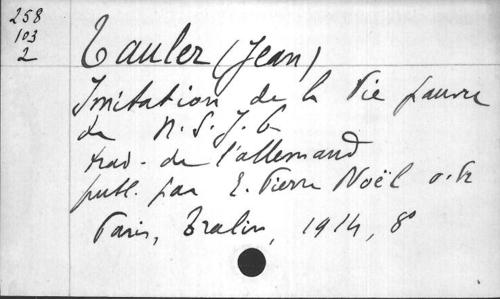 258
103
2
Tauler (Jean)
Imitation de la Vie pauvre
de N. S. J. C
trad. de l'allemand
publ. par E. Pierre Noël o. fr
Paris, Tralin, 1914, 8°